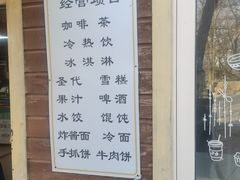 经营项目
咖啡 茶
冷热饮
冰淇淋
圣代 雪糕
果汁 啤酒
水饺 馄饨
炸酱面 冷面
手抓饼 牛肉饼